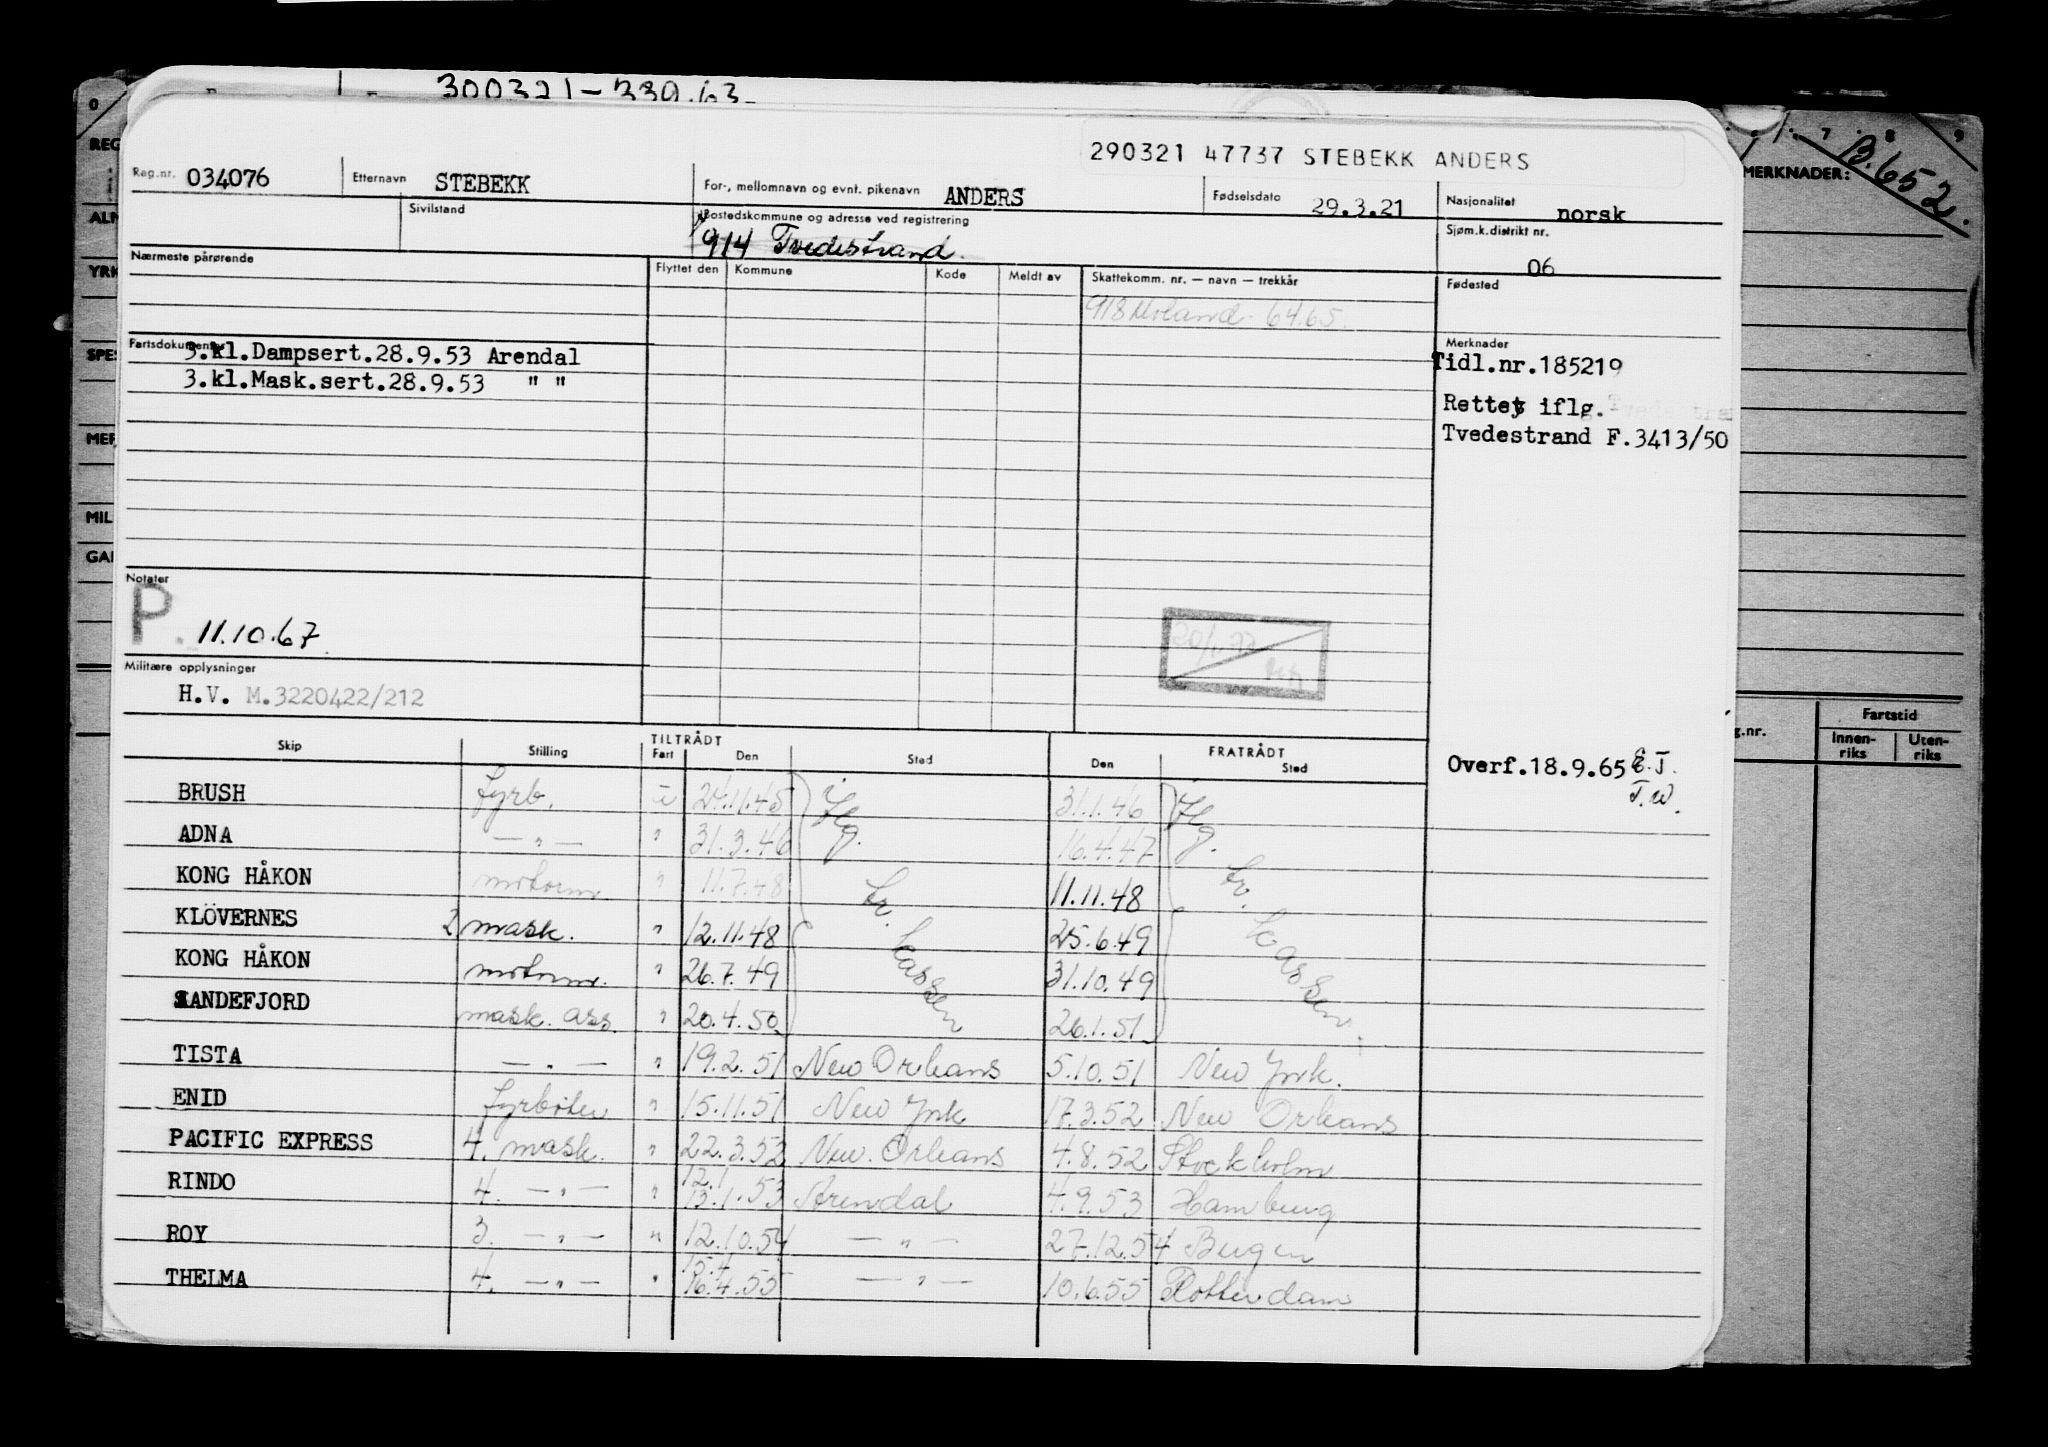 300321-339.63
290321 47737 STEBEKK ANDERS
B.652.
MERKNADER:
Reg.nr. 034076 Etternavn STEBEKK For-, mellomnavn og evnt. pikenavn ANDERS Fødselsdato 29.3.21 Nasjonalitet norsk
Sivilstand Bostedskommune og adresse ved registrering Sjøm.k.distrikt nr.
914 Tvedestrand. 06
Nærmeste pårørende Flyttet den Kommune Kode Meldt av Skattekomm. nr. — navn — trekkår Fødested
918 Moland 64.65.
Fartsdokumenter Merknader
3.kl.Dampsert.28.9.53 Arendal Tidl.nr.185219
3.kl.Mask.sert.28.9.53 " "
Rettet iflg.
Tvedestrand F.3413/50
Notater
P. 11.10.67
Militære opplysninger
H.V. M.3220422/212
Skip Stilling TILTRÅDT FRATRÅDT
Fart Den Sted Den Sted
Overf.18.9.65
BRUSH fyrb. u 24.11.45 iflg. 31.1.46 iflg.
ADNA — " — " 31.3.46 16.4.47
KONG HÅKON motorm. " 11.7.48 11.11.48
KLÖVERNES 2 mask. " 12.11.48 25.6.49
KONG HÅKON motorm. " 26.7.49 31.10.49
SANDEFJORD mask. ass. " 20.4.50 26.1.51
TISTA — " — " 19.2.51 New Orleans 5.10.51 New York.
ENID fyrbøter " 15.11.51 New York 17.3.52 New Orleans
PACIFIC EXPRESS 4. mask. " 22.3.52 New Orleans 4.8.52 Stockholm
RINDO 4. — " — " 12.1 13.1.53 Arendal 4.9.53 Hamburg
ROY 3. — " — " 12.10.54 — " — 27.12.54 Bergen
THELMA 4. — " — " 15.4 16.4.55 — " — 10.6.55 Rotterdam
Fartstid
Innen-riks Uten-riks